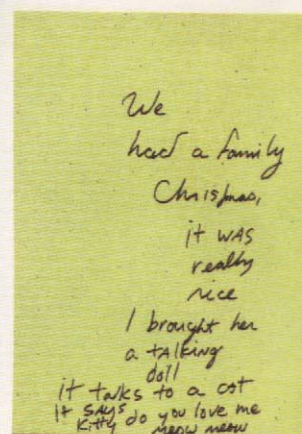 We
had a family
Christmas,
it WAS
really
nice
I brought her
a tAlking
doll
it talks to a cat
It SAYS
Kitty do you love me
meow meow